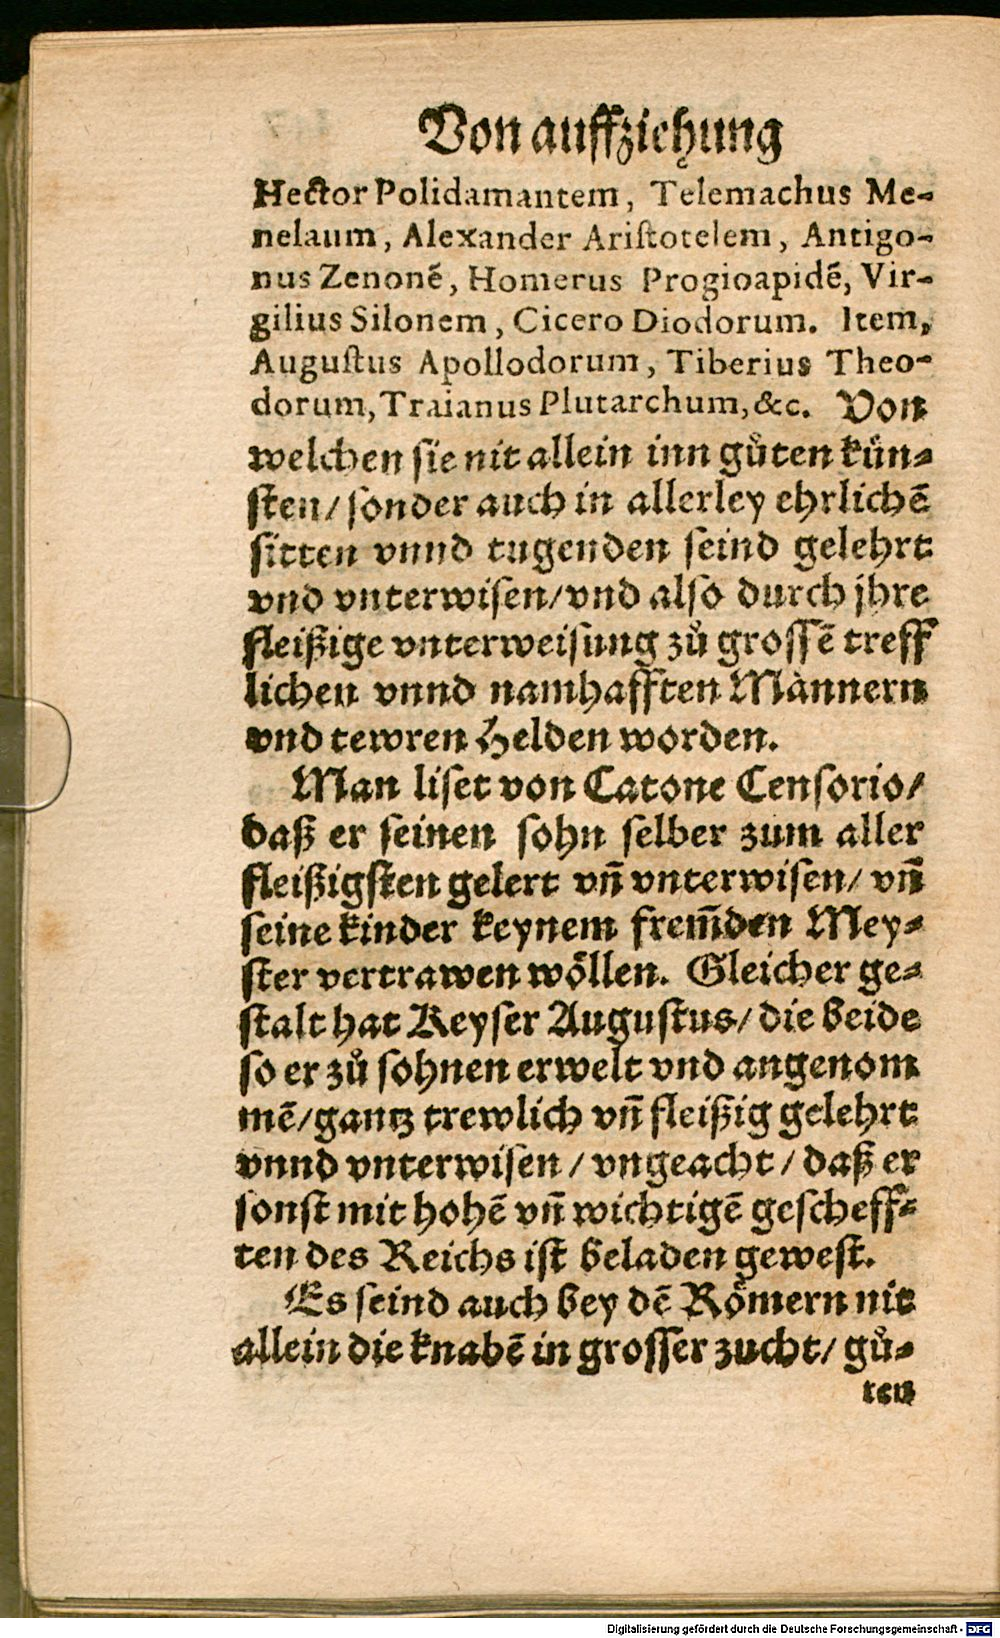 Von auffziehung
Hector Polidamantem, Telemachus Me-
nelaum, Alexander Aristotelem, Antigo-
nus Zenonē, Homerus Progioapidē, Vir-
gilius Silonem, Cicero Diodorum. Item,
Augustus Apollodorum, Tiberius Theo-
dorum, Traianus Plutarchum, &c. Von
welchen sie nit allein inn gůten kün-
sten/ sonder auch in allerley ehrlichē
sitten vnnd tugenden seind gelehrt
vnd vnterwisen/ vnd also durch jhre
fleißige vnterweisung zů grossē treff
lichen vnnd namhafften Männern
vnd tewren Helden worden.
Man liset von Catone Censorio/
daß er seinen sohn selber zum aller
fleißigsten gelert vñ vnterwisen/ vñ
seine kinder keynem frem̄den Mey-
ster vertrawen wöllen. Gleicher ge-
stalt hat Keyser Augustus/ die beide
so er zů sohnen erwelt vnd angenom
mē/ gantz trewlich vñ fleißig gelehrt
vnnd vnterwisen/ vngeacht/ daß er
sonst mit hohē vñ wichtigē gescheff-
ten des Reichs ist beladen gewest.
Es seind auch bey dē Römern nit
allein die knabē in grosser zucht/ gů-
ten
Digitalisierung gefördert durch die Deutsche Forschungsgemeinschaft - DFG